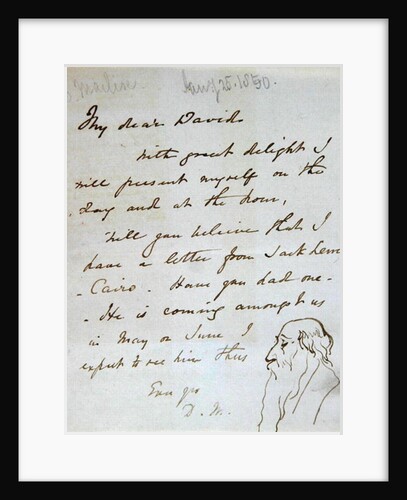 Maclise. Jany 25. 1850.
My dear David
With great delight I
will present myself on the
day and at the hour,
Will you believe that I
have a letter from Jack
- Cairo. Have you had one -
- He is coming amongst us
in May or June I
expect to see him thus
Ever yrs
D. M.